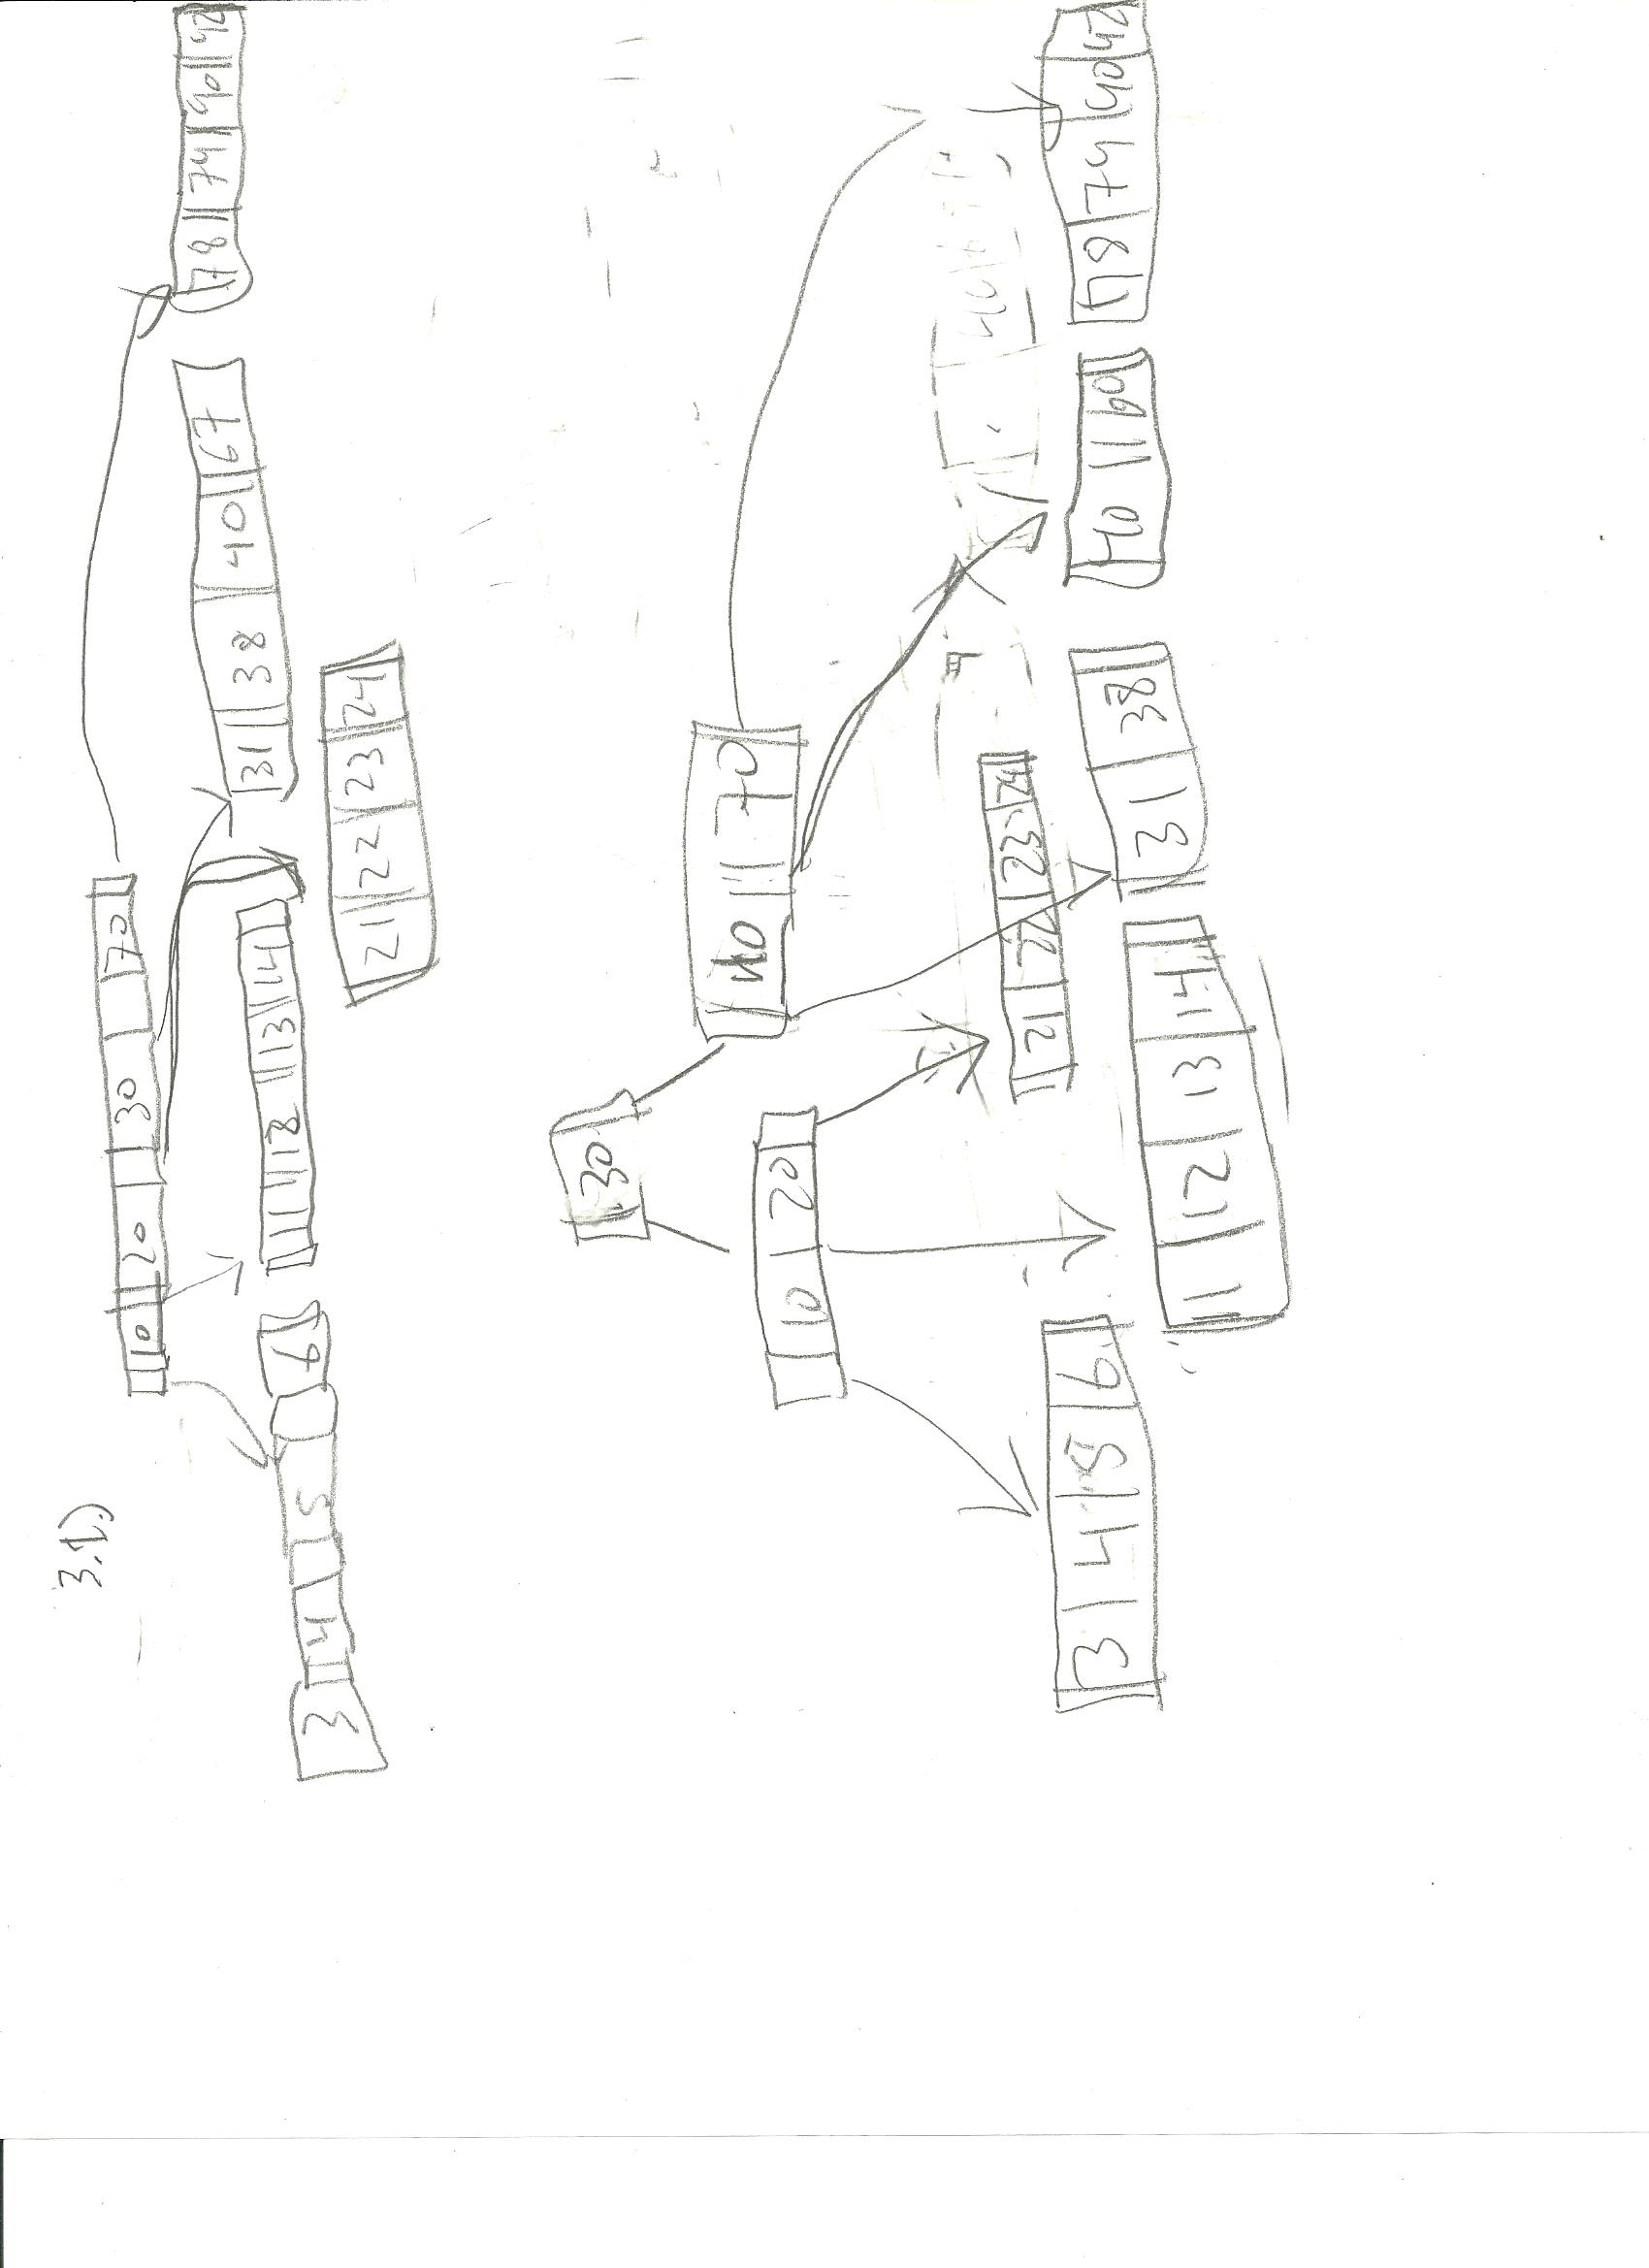 3.1.)
10 20 30 70
3 4 5 6
11 12 13 14
21 22 23 24
31 38 40 67
78 74 90 92
30
10 20
40 70
3 4 5 6
11 12 13 14
21 22 23 24
31 38
40 60
78 74 90 92